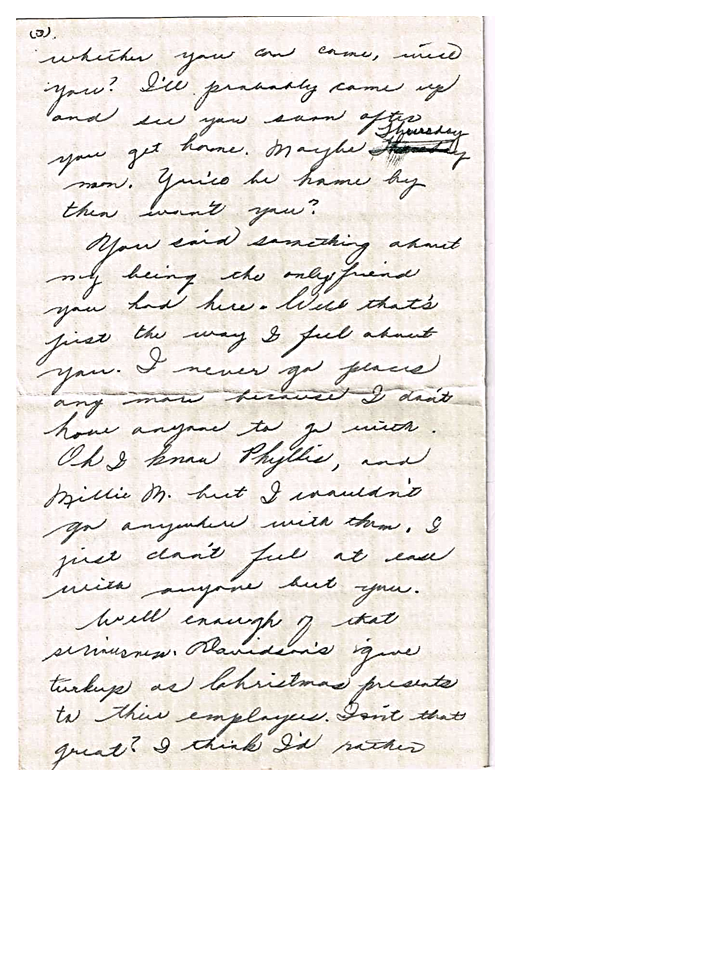 (3).
whether you can come, will
you? I'll probably come up
and see you soon after
you get home. Maybe Thursday
noon. You'll be home by
then won't you?
You said something about
my being the only friend
you had here. Well that's
just the way I feel about
you. I never go places
any more because I don't
have anyone to go with.
Oh I know Phyllis, and
Millie M. but I wouldn't
go anywhere with them. I
just don't feel at ease
with anyone but you.
Well enough of that
seriousness. Davidson's give
turkeys as Christmas presents
to their employees. Isn't that
great? I think I'd rather